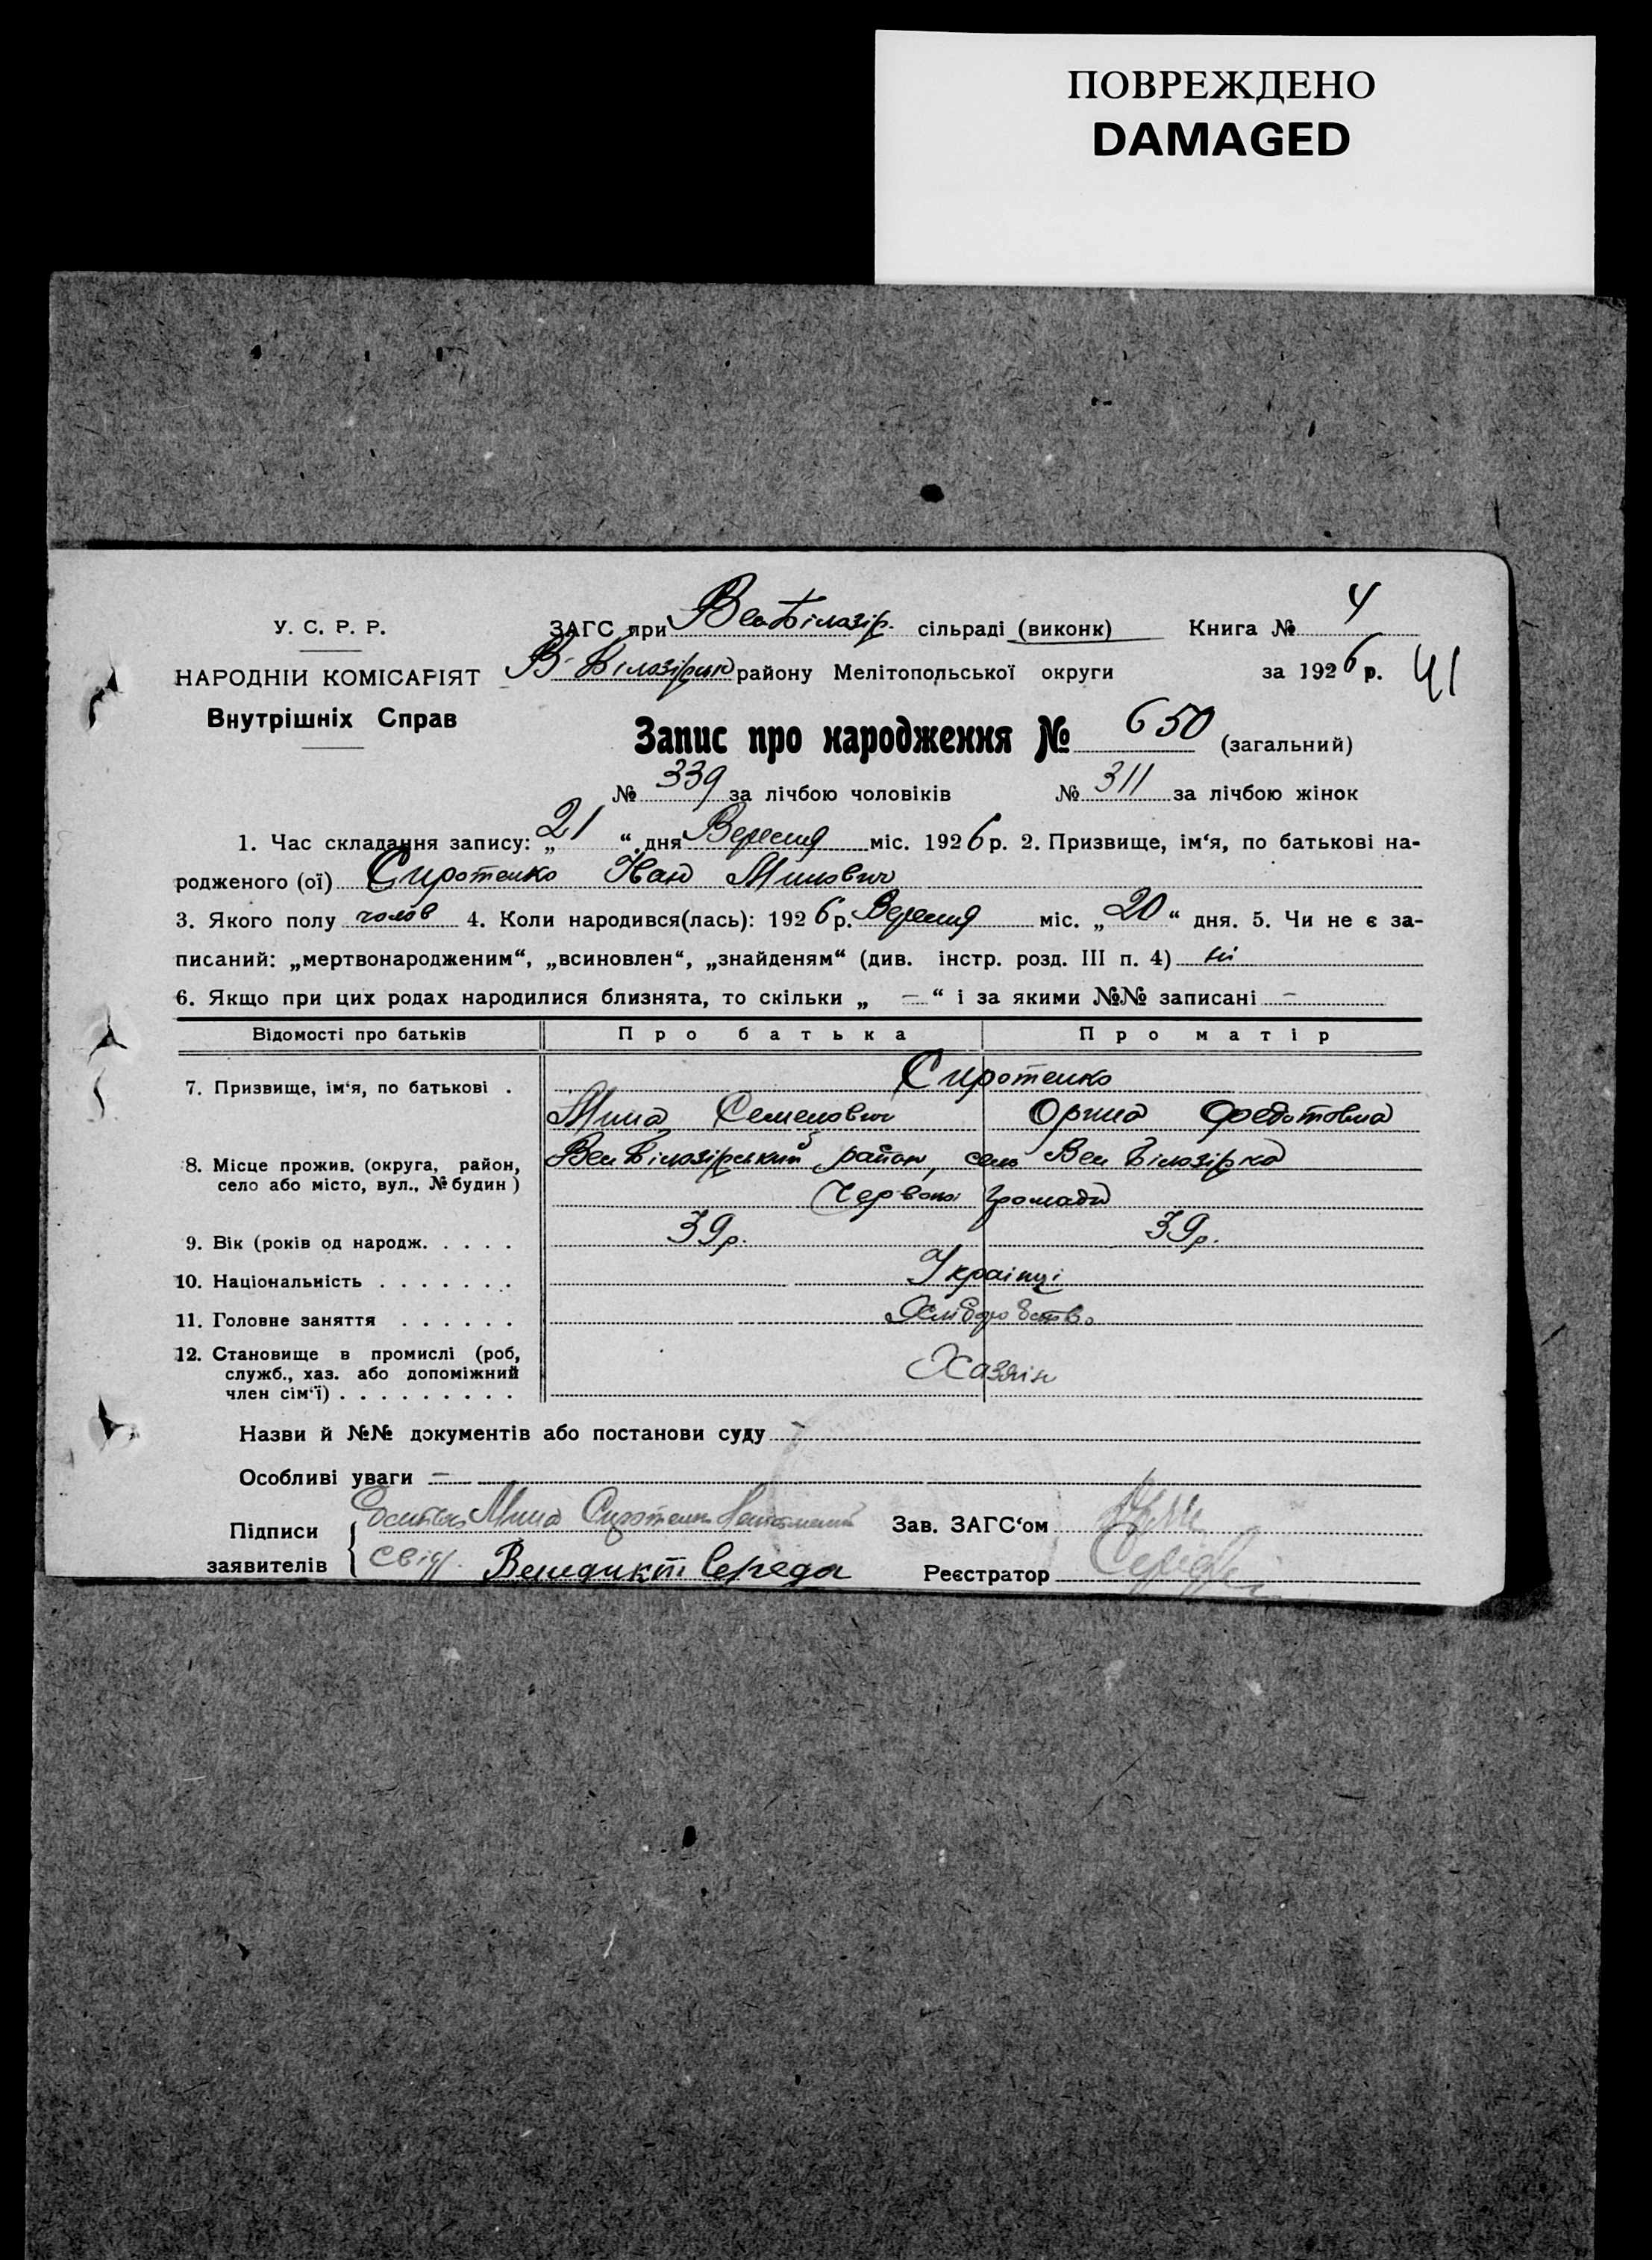 ПОВРЕЖДЕНО
DAMAGED
У. С. Р. Р.
НАРОДНІЙ КОМІСАРІЯТ
Внутрішніх Справ
ЗАГС при Вел Білозір. сільраді (виконк) Книга № 4
В-Білозірик району Мелітопольської округи за 1926 р. 41
Запис про народження № 650 (загальний)
№ 339 за лічбою чоловіків № 311 за лічбою жінок
1. Час складання запису: „21“ дня Вересня міс. 1926 р. 2. Призвище, ім‘я, по батькові на-
родженого (ої) Сиротенко Іван Минович
3. Якого полу чолов 4. Коли народився(лась): 1926 р. Вересня міс. „20“ дня. 5. Чи не є за-
писаний: „мертвонародженим“, „всиновлен“, „знайденям“ (див. інстр. розд. III п. 4) ні
6. Якщо при цих родах народилися близнята, то скільки „ — “ і за якими №№ записані —
Відомості про батьків Про батька Про матір
7. Призвище, ім‘я, по батькові . Сиротенко
Мина Семенович Орина Федотовна
8. Місце прожив. (округа, район, Вел Білозірський район, село Вел Білозірка
село або місто, вул., № будин) Червоної Громади
9. Вік (років од народж. . . . . 39 р. 39 р.
10. Національність . . . . . . . Українці
11. Головне заняття . . . . . . Хліборобство
12. Становище в промислі (роб,
служб., хаз. або допоміжний Хазяін
член сім‘ї) . . . . . . . . .
Назви й №№ документів або постанови суду —
Особливі уваги —
Підписи Мина Сиротенко Зав. ЗАГС‘ом
заявителів Свід. Венедикт Середа Реєстратор